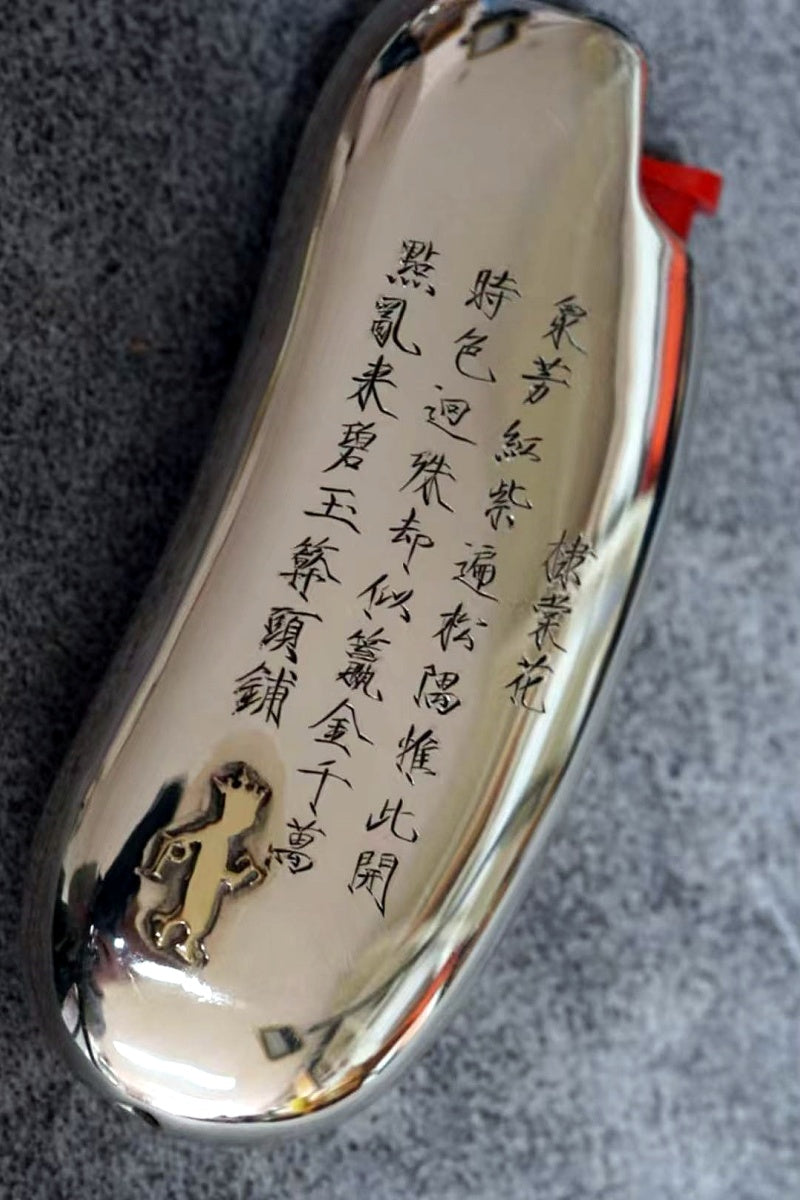 棣棠花
衆芳紅紫遍松隅惟此開
時色迥殊却似籯金千萬
點亂来碧玉簪頭鋪